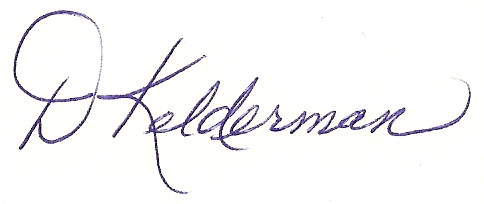 D Kelderman